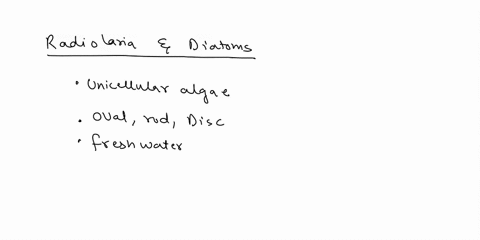 Radiolaria & Diatoms
• Unicellular algae
• Oval, rod, Disc
• freshwater